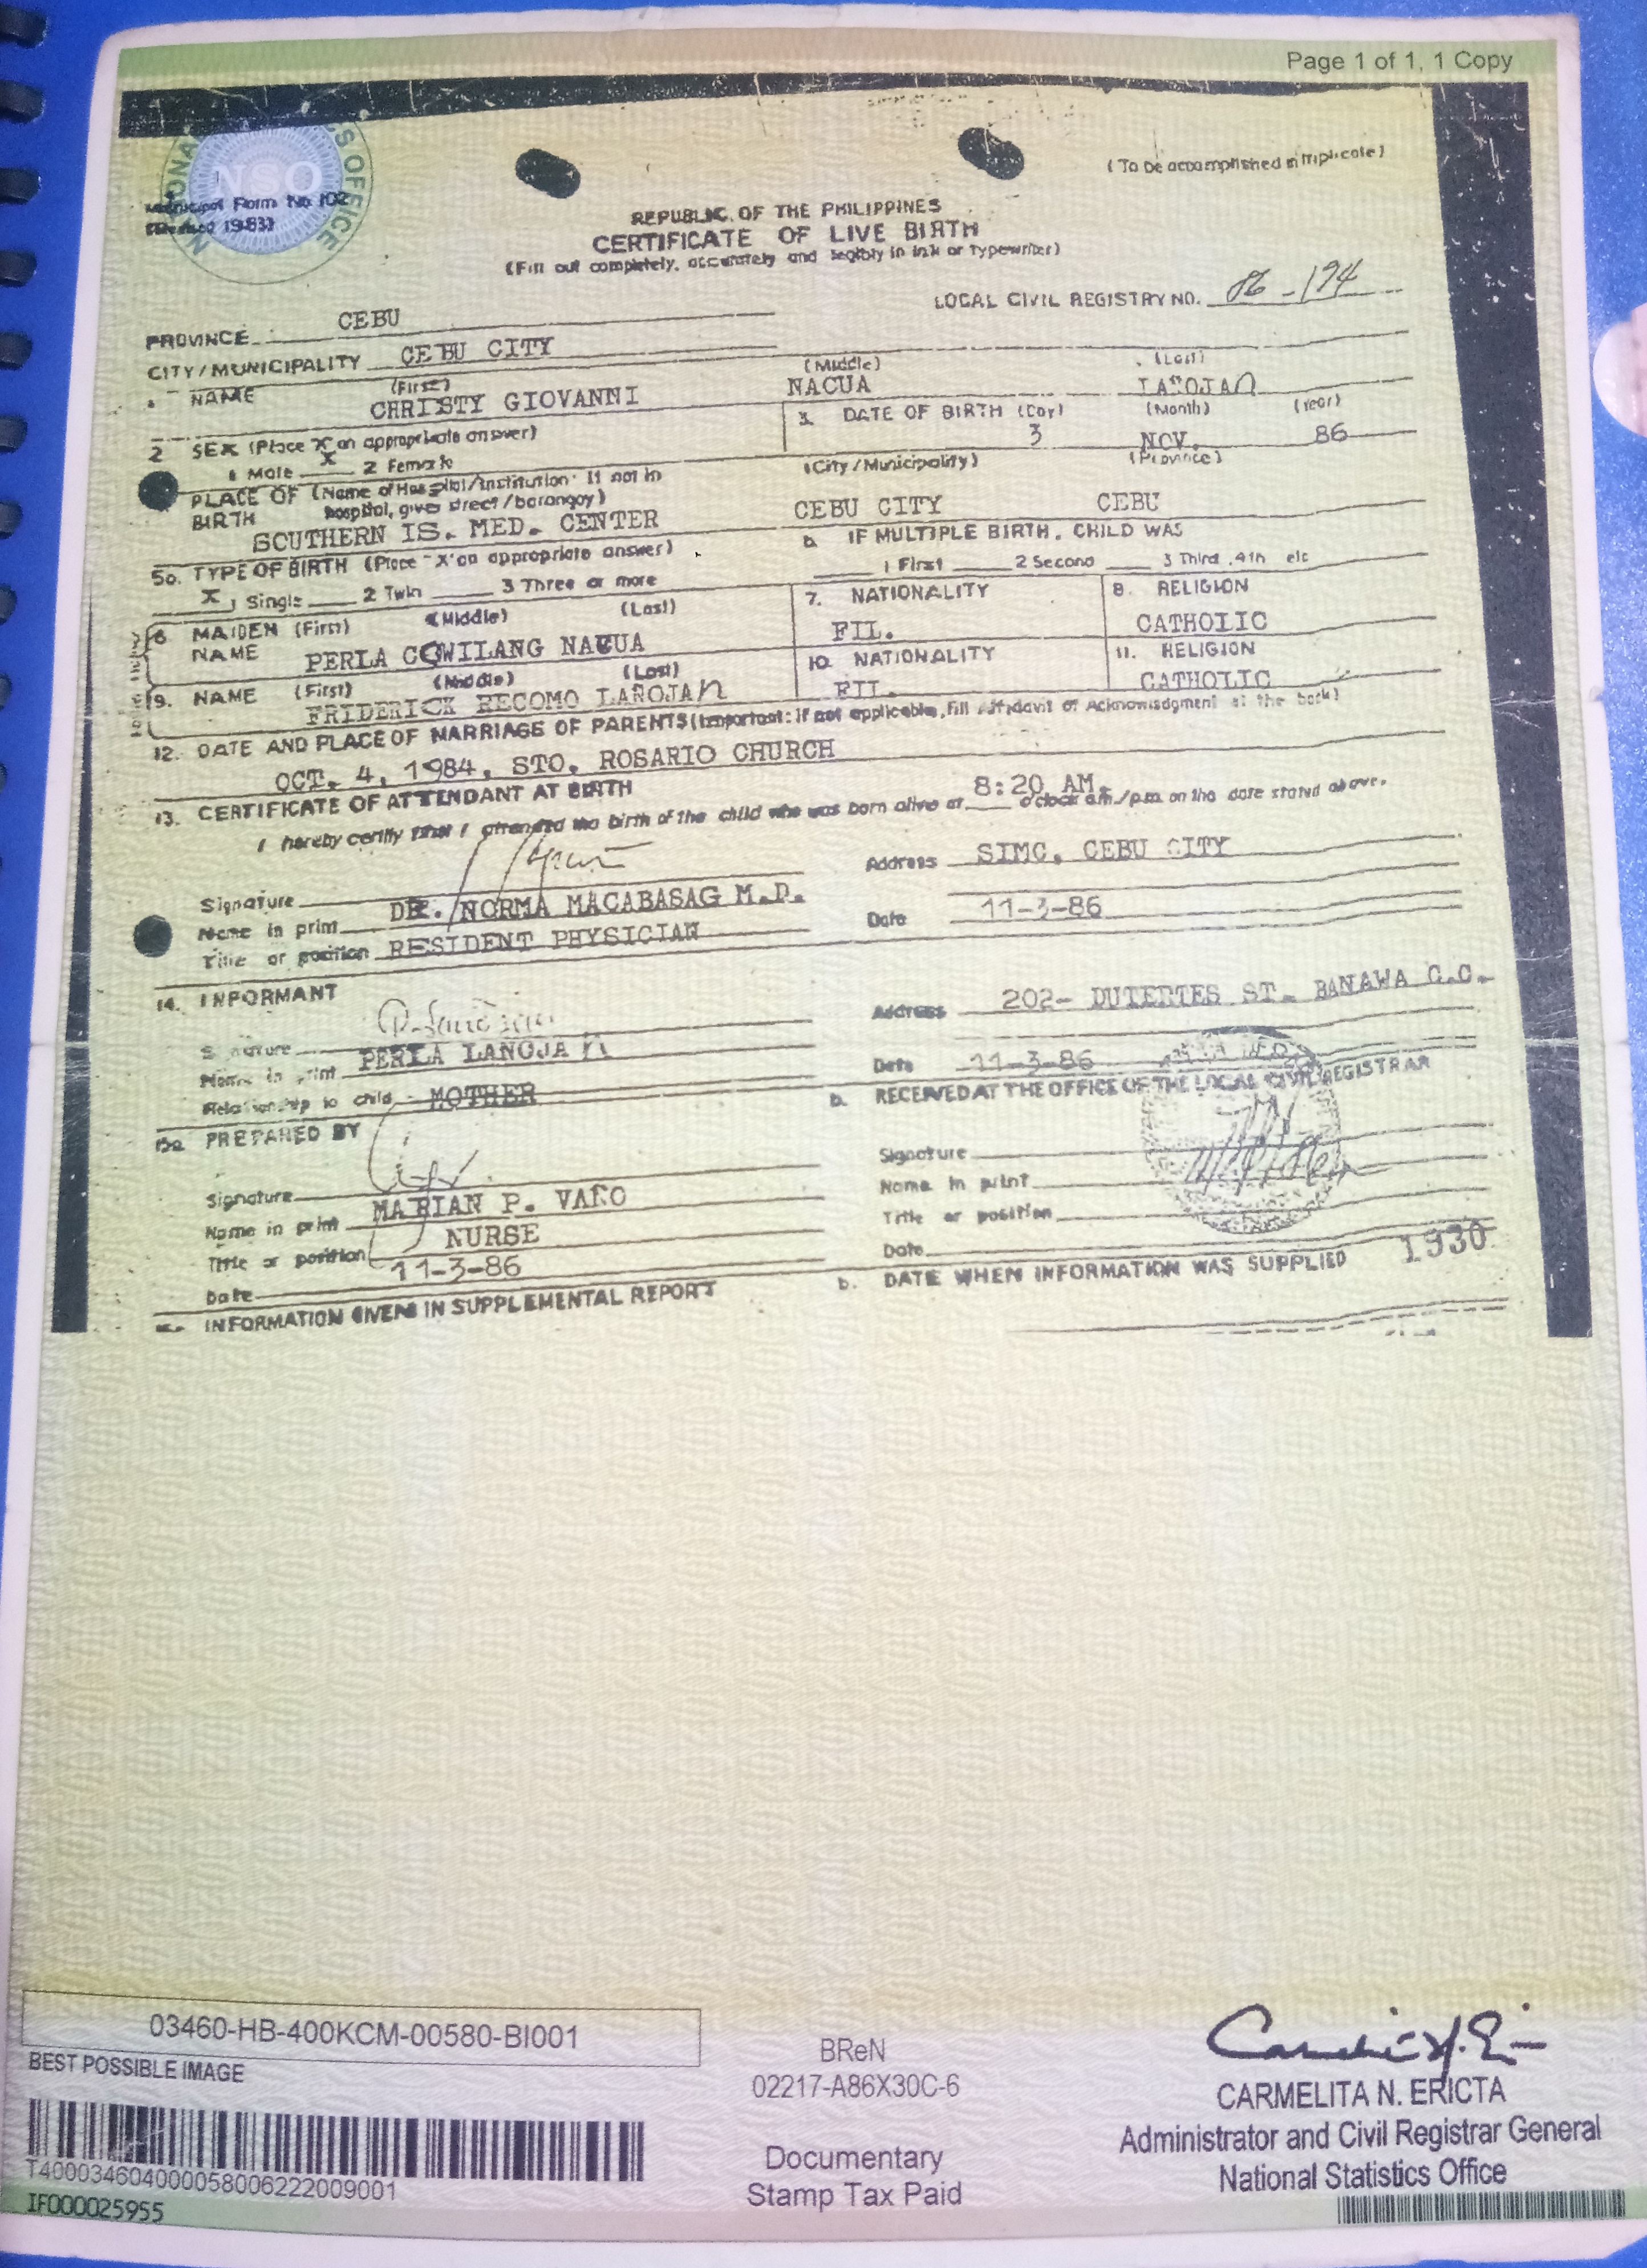 Page 1 of 1, 1 Copy
NSO
Municipal Form No. 102
(Revised 1983)
(To be accomplished in triplicate)
REPUBLIC OF THE PHILIPPINES
CERTIFICATE OF LIVE BIRTH
(Fill out completely, accurately and legibly in ink or typewriter)
LOCAL CIVIL REGISTRY NO.
PROVINCE CEBU
CITY/MUNICIPALITY CEBU CITY
NAME (First) (Middle) (Last)
CHRISTY GIOVANNI NACUA LAÑOJAN
2 SEX (Place X on appropriate answer)
1 Male X 2 Female
3. DATE OF BIRTH (Day) (Month) (Year)
3 NOV. 86
PLACE OF BIRTH (Name of Hospital/Institution. If not in hospital, give street/barangay) (City/Municipality) (Province)
SOUTHERN IS. MED. CENTER CEBU CITY CEBU
5a. TYPE OF BIRTH (Place "X" on appropriate answer)
X 1 Single 2 Twin 3 Three or more
b. IF MULTIPLE BIRTH, CHILD WAS
1 First 2 Second 3 Third, 4th etc
6 MAIDEN NAME (First) (Middle) (Last)
PERLA COWILANG NACUA
7. NATIONALITY
FIL.
8. RELIGION
CATHOLIC
9. NAME (First) (Middle) (Last)
FRIDERICK RECOMO LAÑOJAN
10. NATIONALITY
FIL.
11. RELIGION
CATHOLIC
12. DATE AND PLACE OF MARRIAGE OF PARENTS (Important: If not applicable, Fill Affidavit of Acknowledgment at the back)
OCT. 4, 1984, STO. ROSARIO CHURCH
13. CERTIFICATE OF ATTENDANT AT BIRTH
I hereby certify that I attended the birth of the child who was born alive at 8:20 AM. o'clock a.m./p.m. on the date stated above.
Signature
Name in print DR. NORMA MACABASAG M.D.
Title or position RESIDENT PHYSICIAN
Address SIMC, CEBU CITY
Date 11-3-86
14. INFORMANT
Signature
Name in print PERLA LAÑOJAN
Relationship to child MOTHER
Address 202- DUTERTES ST. BANAWA C.C.
Date 11-3-86
15a. PREPARED BY
Signature
Name in print MARIAN P. VAÑO
Title or position NURSE
Date 11-3-86
b. RECEIVED AT THE OFFICE OF THE LOCAL CIVIL REGISTRAR
Signature
Name in print
Title or position
Date
INFORMATION GIVEN IN SUPPLEMENTAL REPORT
b. DATE WHEN INFORMATION WAS SUPPLIED 1930
03460-HB-400KCM-00580-BI001
BEST POSSIBLE IMAGE
T400034604000058006222009001
IF000025955
BReN
02217-A86X30C-6
Documentary
Stamp Tax Paid
CARMELITA N. ERICTA
Administrator and Civil Registrar General
National Statistics Office